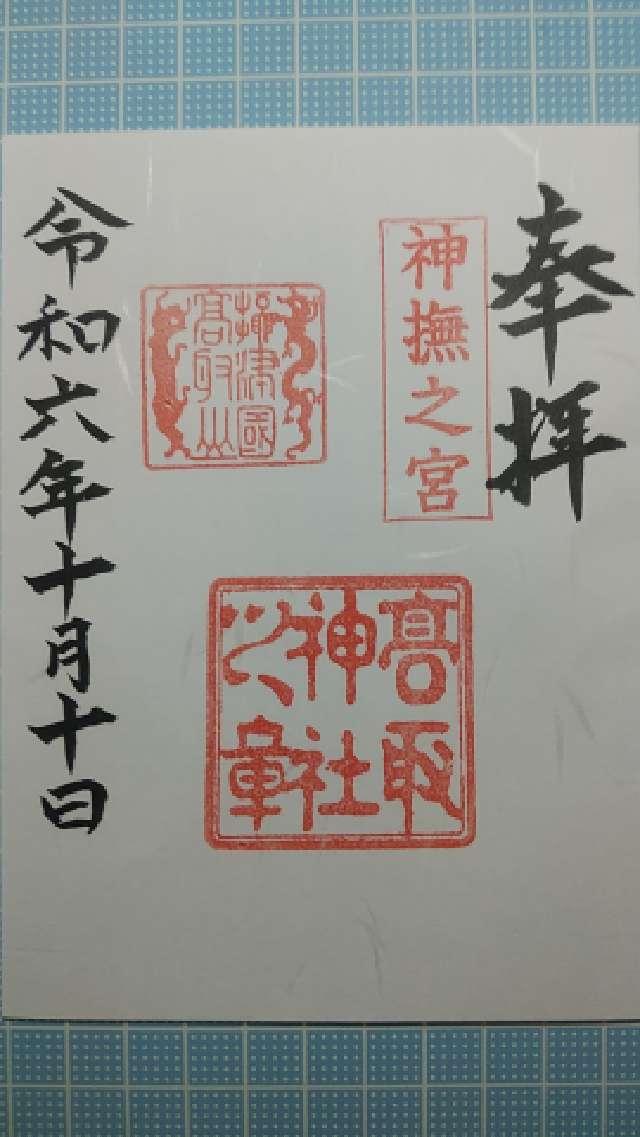 奉拝
神撫之宮
攝津國
髙取山
髙取
神社
之章
令和六年十月十日